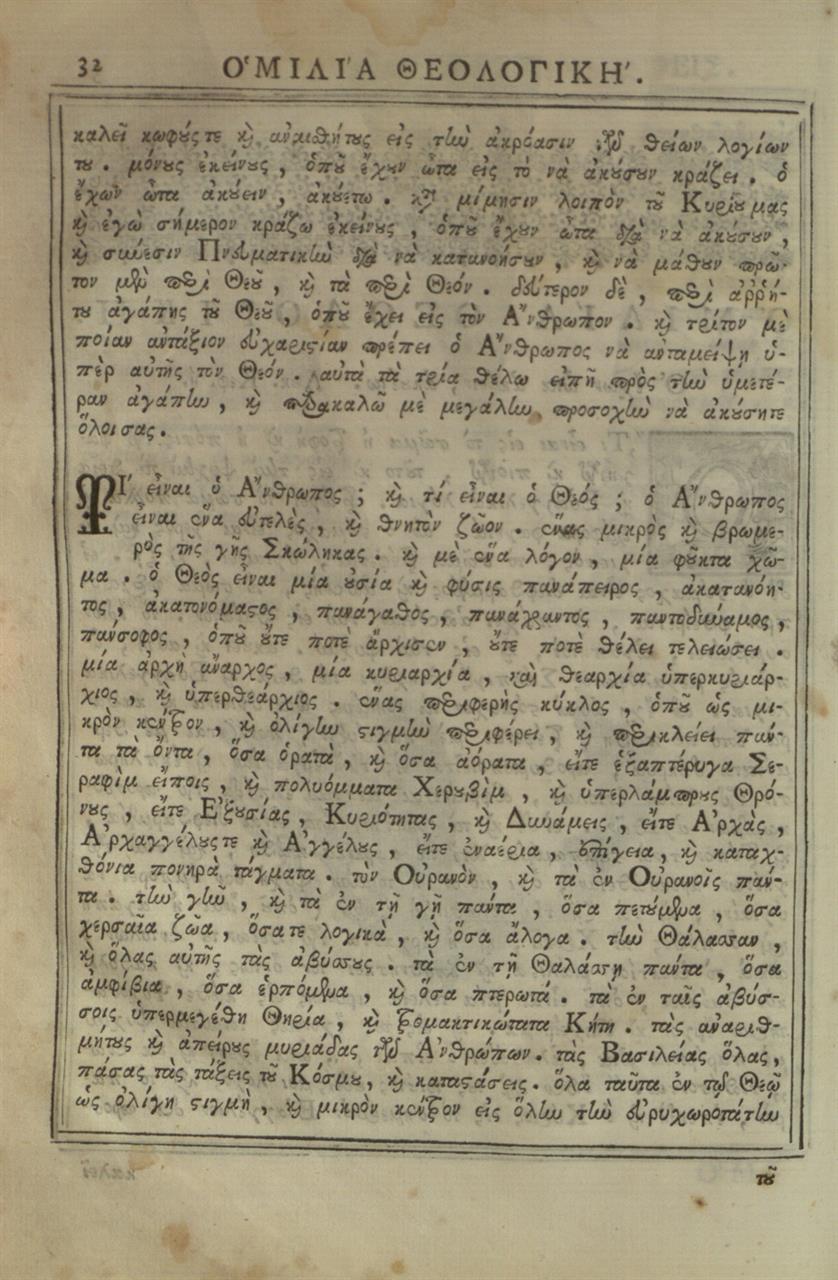 32 ὉΜΙΛΙΑ ΘΕΟΛΟΓΙΚΗ.
καλεῖ κωφούς τε καὶ ἀναισθήτους εἰς τὴν ἀκρόασιν τῶν θείων λογίων
του. μόνους ἐκείνους, ὁποῦ ἔχουν ὦτα εἰς τὸ νὰ ἀκούσουν κράζει. ὁ
ἔχων ὦτα ἀκούειν, ἀκουέτω. κατὰ μίμησιν λοιπὸν τοῦ Κυρίου μας
καὶ ἐγὼ σήμερον κράζω ἐκείνους, ὁποῦ ἔχουν ὦτα διὰ νὰ ἀκούσουν,
καὶ σύνεσιν Πνευματικὴν διὰ νὰ κατανοήσουν, καὶ νὰ μάθουν πρῶ-
τον μὲν περὶ Θεοῦ, καὶ τὰ περὶ Θεόν. δεύτερον δὲ, περὶ ἀῤῥή-
του ἀγάπης τοῦ Θεοῦ, ὁποῦ ἔχει εἰς τὸν Ἄνθρωπον. καὶ τρίτον μὲ
ποίαν ἀντάξιον εὐχαριστίαν πρέπει ὁ Ἄνθρωπος νὰ ἀνταμείψῃ ὑ-
πὲρ αὐτῆς τὸν Θεόν. αὐτὰ τὰ τρία θέλω εἰπῇ πρὸς τὴν ὑμετέ-
ραν ἀγάπην, καὶ παρακαλῶ μὲ μεγάλην προσοχὴν νὰ ἀκούσητε
ὅλοι σας.
Τί εἶναι ὁ Ἄνθρωπος; καὶ τί εἶναι ὁ Θεός; ὁ Ἄνθρωπος
εἶναι ἕνα εὐτελὲς, καὶ θνητὸν ζῶον. ἕνας μικρὸς καὶ βρωμε-
ρὸς τῆς γῆς Σκώληκας. καὶ μὲ ἕνα λόγον, μία φοῦκτα χῶ-
μα. ὁ Θεὸς εἶναι μία οὐσία καὶ φύσις πανάπειρος, ἀκατανόη-
τος, ἀκατονόμαστος, πανάγαθος, πανάχραντος, παντοδύναμος,
πάνσοφος, ὁποῦ οὔτε ποτὲ ἄρχισεν, οὔτε ποτὲ θέλει τελειώσει.
μία ἀρχὴ ἄναρχος, μία κυριαρχία, καὶ θεαρχία ὑπερκυριάρ-
χιος, καὶ ὑπερθεάρχιος. ἕνας περιφερὴς κύκλος, ὁποῦ ὡς μι-
κρὸν κέντρον, καὶ ὀλίγην στιγμὴν περιφέρει, καὶ περικλείει πάν-
τα τὰ ὄντα, ὅσα ὁρατὰ, καὶ ὅσα ἀόρατα, εἴτε ἑξαπτέρυγα Σε-
ραφὶμ εἴποις, καὶ πολυόμματα Χερουβὶμ, καὶ ὑπερλάμπρους Θρό-
νους, εἴτε Ἐξουσίας, Κυριότητας, καὶ Δυνάμεις, εἴτε Ἀρχὰς,
Ἀρχαγγέλους τε καὶ Ἀγγέλους, εἴτε ἐναέρια, ἐπίγεια, καὶ καταχ-
θόνια πονηρὰ τάγματα. τὸν Οὐρανὸν, καὶ τὰ ἐν Οὐρανοῖς πάν-
τα. τὴν γῆν, καὶ τὰ ἐν τῇ γῇ πάντα, ὅσα πετούμενα, ὅσα
χερσαῖα ζῶα, ὅσα τε λογικὰ, καὶ ὅσα ἄλογα. τὴν Θάλασσαν,
καὶ ὅλας αὐτῆς τὰς ἀβύσσους. τὰ ἐν τῇ Θαλάσσῃ πάντα, ὅσα
ἀμφίβια, ὅσα ἑρπόμενα, καὶ ὅσα πτερωτά. τὰ ἐν ταῖς ἀβύσ-
σοις ὑπερμεγέθη Θηρία, καὶ τρομακτικώτατα Κήτη. τὰς ἀναριθ-
μήτους καὶ ἀπείρους μυριάδας τῶν Ἀνθρώπων. τὰς Βασιλείας ὅλας,
πάσας τὰς τάξεις τοῦ Κόσμου, καὶ καταστάσεις. ὅλα ταῦτα ἐν τῷ Θεῷ
ὡς ὀλίγη στιγμὴ, καὶ μικρὸν κέντρον εἰς ὅλην τὴν εὐρυχωροτάτην
τοῦ